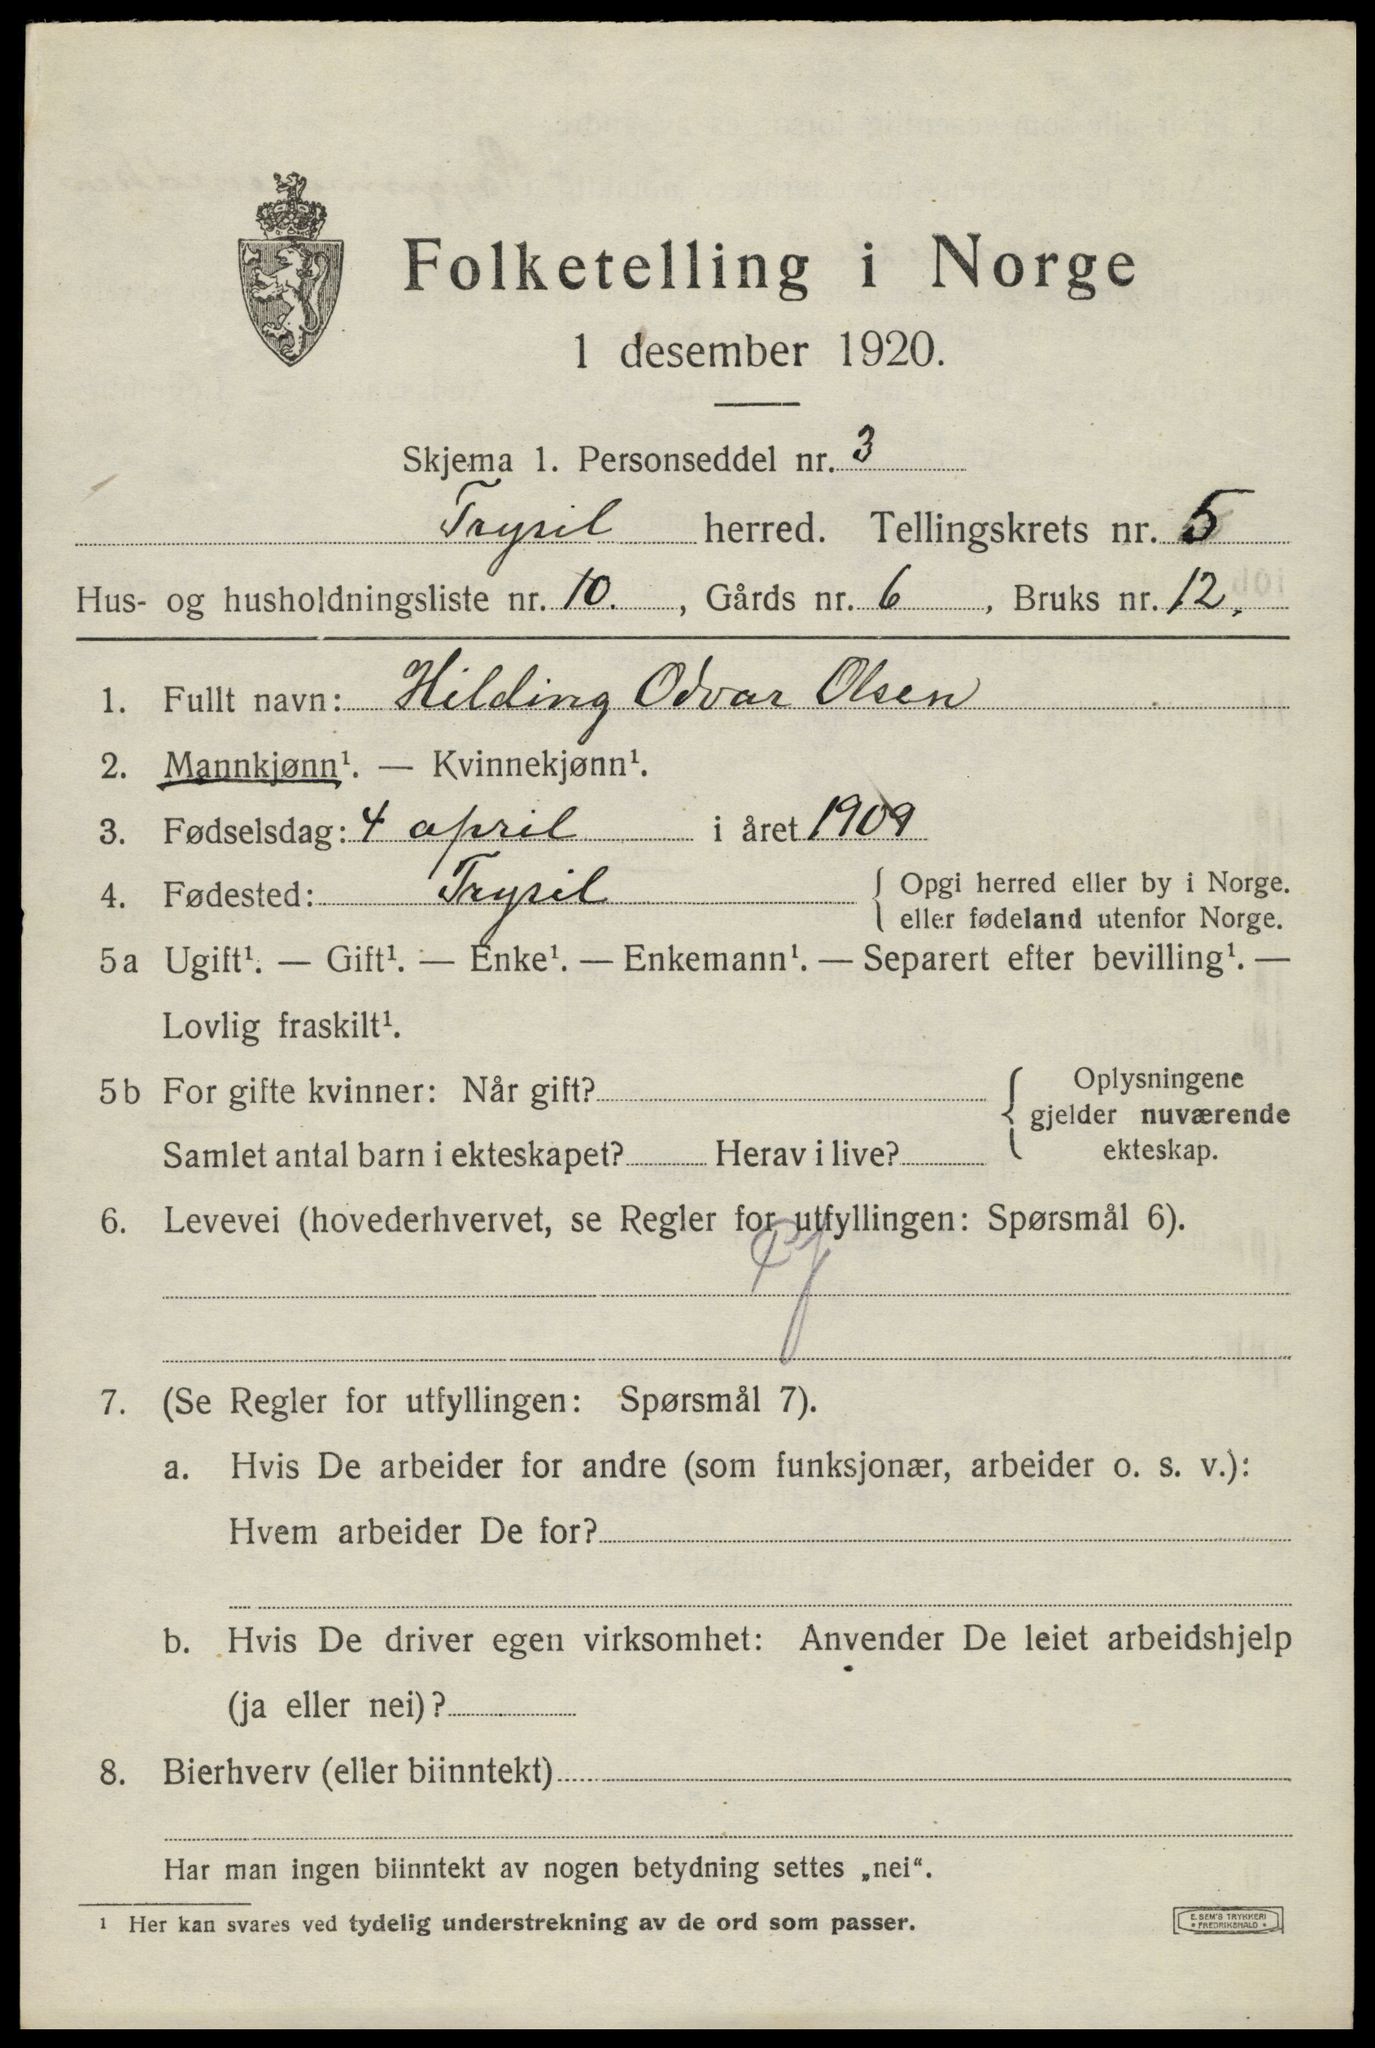 Folketelling i Norge
1 desember 1920.
Skjema 1. Personseddel nr. 3
Trysil herred. Tellingskrets nr. 5
Hus- og husholdningsliste nr. 10. , Gårds nr. 6 , Bruks nr. 12.
1. Fullt navn: Hilding Odvar Olsen
2. Mannkjønn¹. — Kvinnekjønn¹.
3. Fødselsdag: 4 april i året 1909
4. Fødested: Trysil { Opgi herred eller by i Norge.
eller fødeland utenfor Norge.
5a Ugift¹. — Gift¹. — Enke¹. — Enkemann¹. — Separert efter bevilling¹. —
Lovlig fraskilt¹.
5b For gifte kvinner: Når gift? { Oplysningene
gjelder nuværende
Samlet antal barn i ekteskapet? Herav i live? ekteskap.
6. Levevei (hovederhvervet, se Regler for utfyllingen: Spørsmål 6).
7. (Se Regler for utfyllingen: Spørsmål 7).
a. Hvis De arbeider for andre (som funksjonær, arbeider o. s. v.):
Hvem arbeider De for?
b. Hvis De driver egen virksomhet: Anvender De leiet arbeidshjelp
(ja eller nei)?
8. Bierhverv (eller biinntekt)
Har man ingen biinntekt av nogen betydning settes „nei“.
¹ Her kan svares ved tydelig understrekning av de ord som passer.
E. SEM'S TRYKKERI
* FREDRIKSHALD *